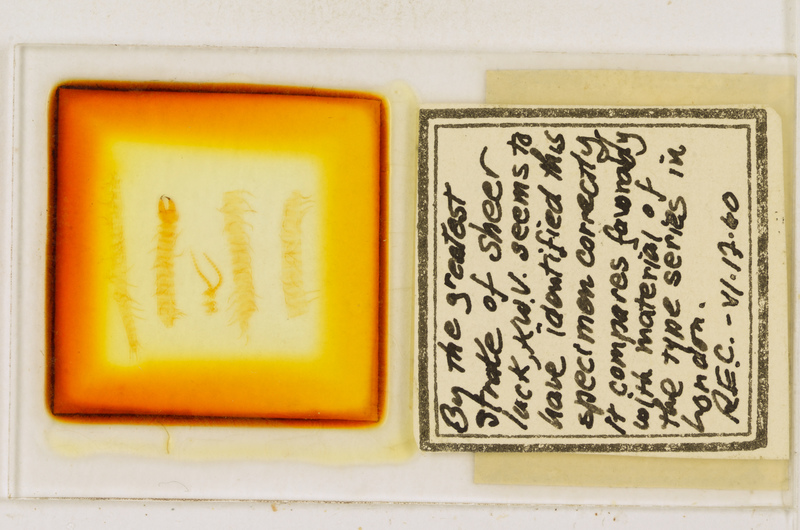 By the greatest
stroke of sheer
luck, K.W.V. seems to
have identified this
specimen correctly
It compares favorably
with material of
the type series in
London.
R.E.C. - VI·17·60